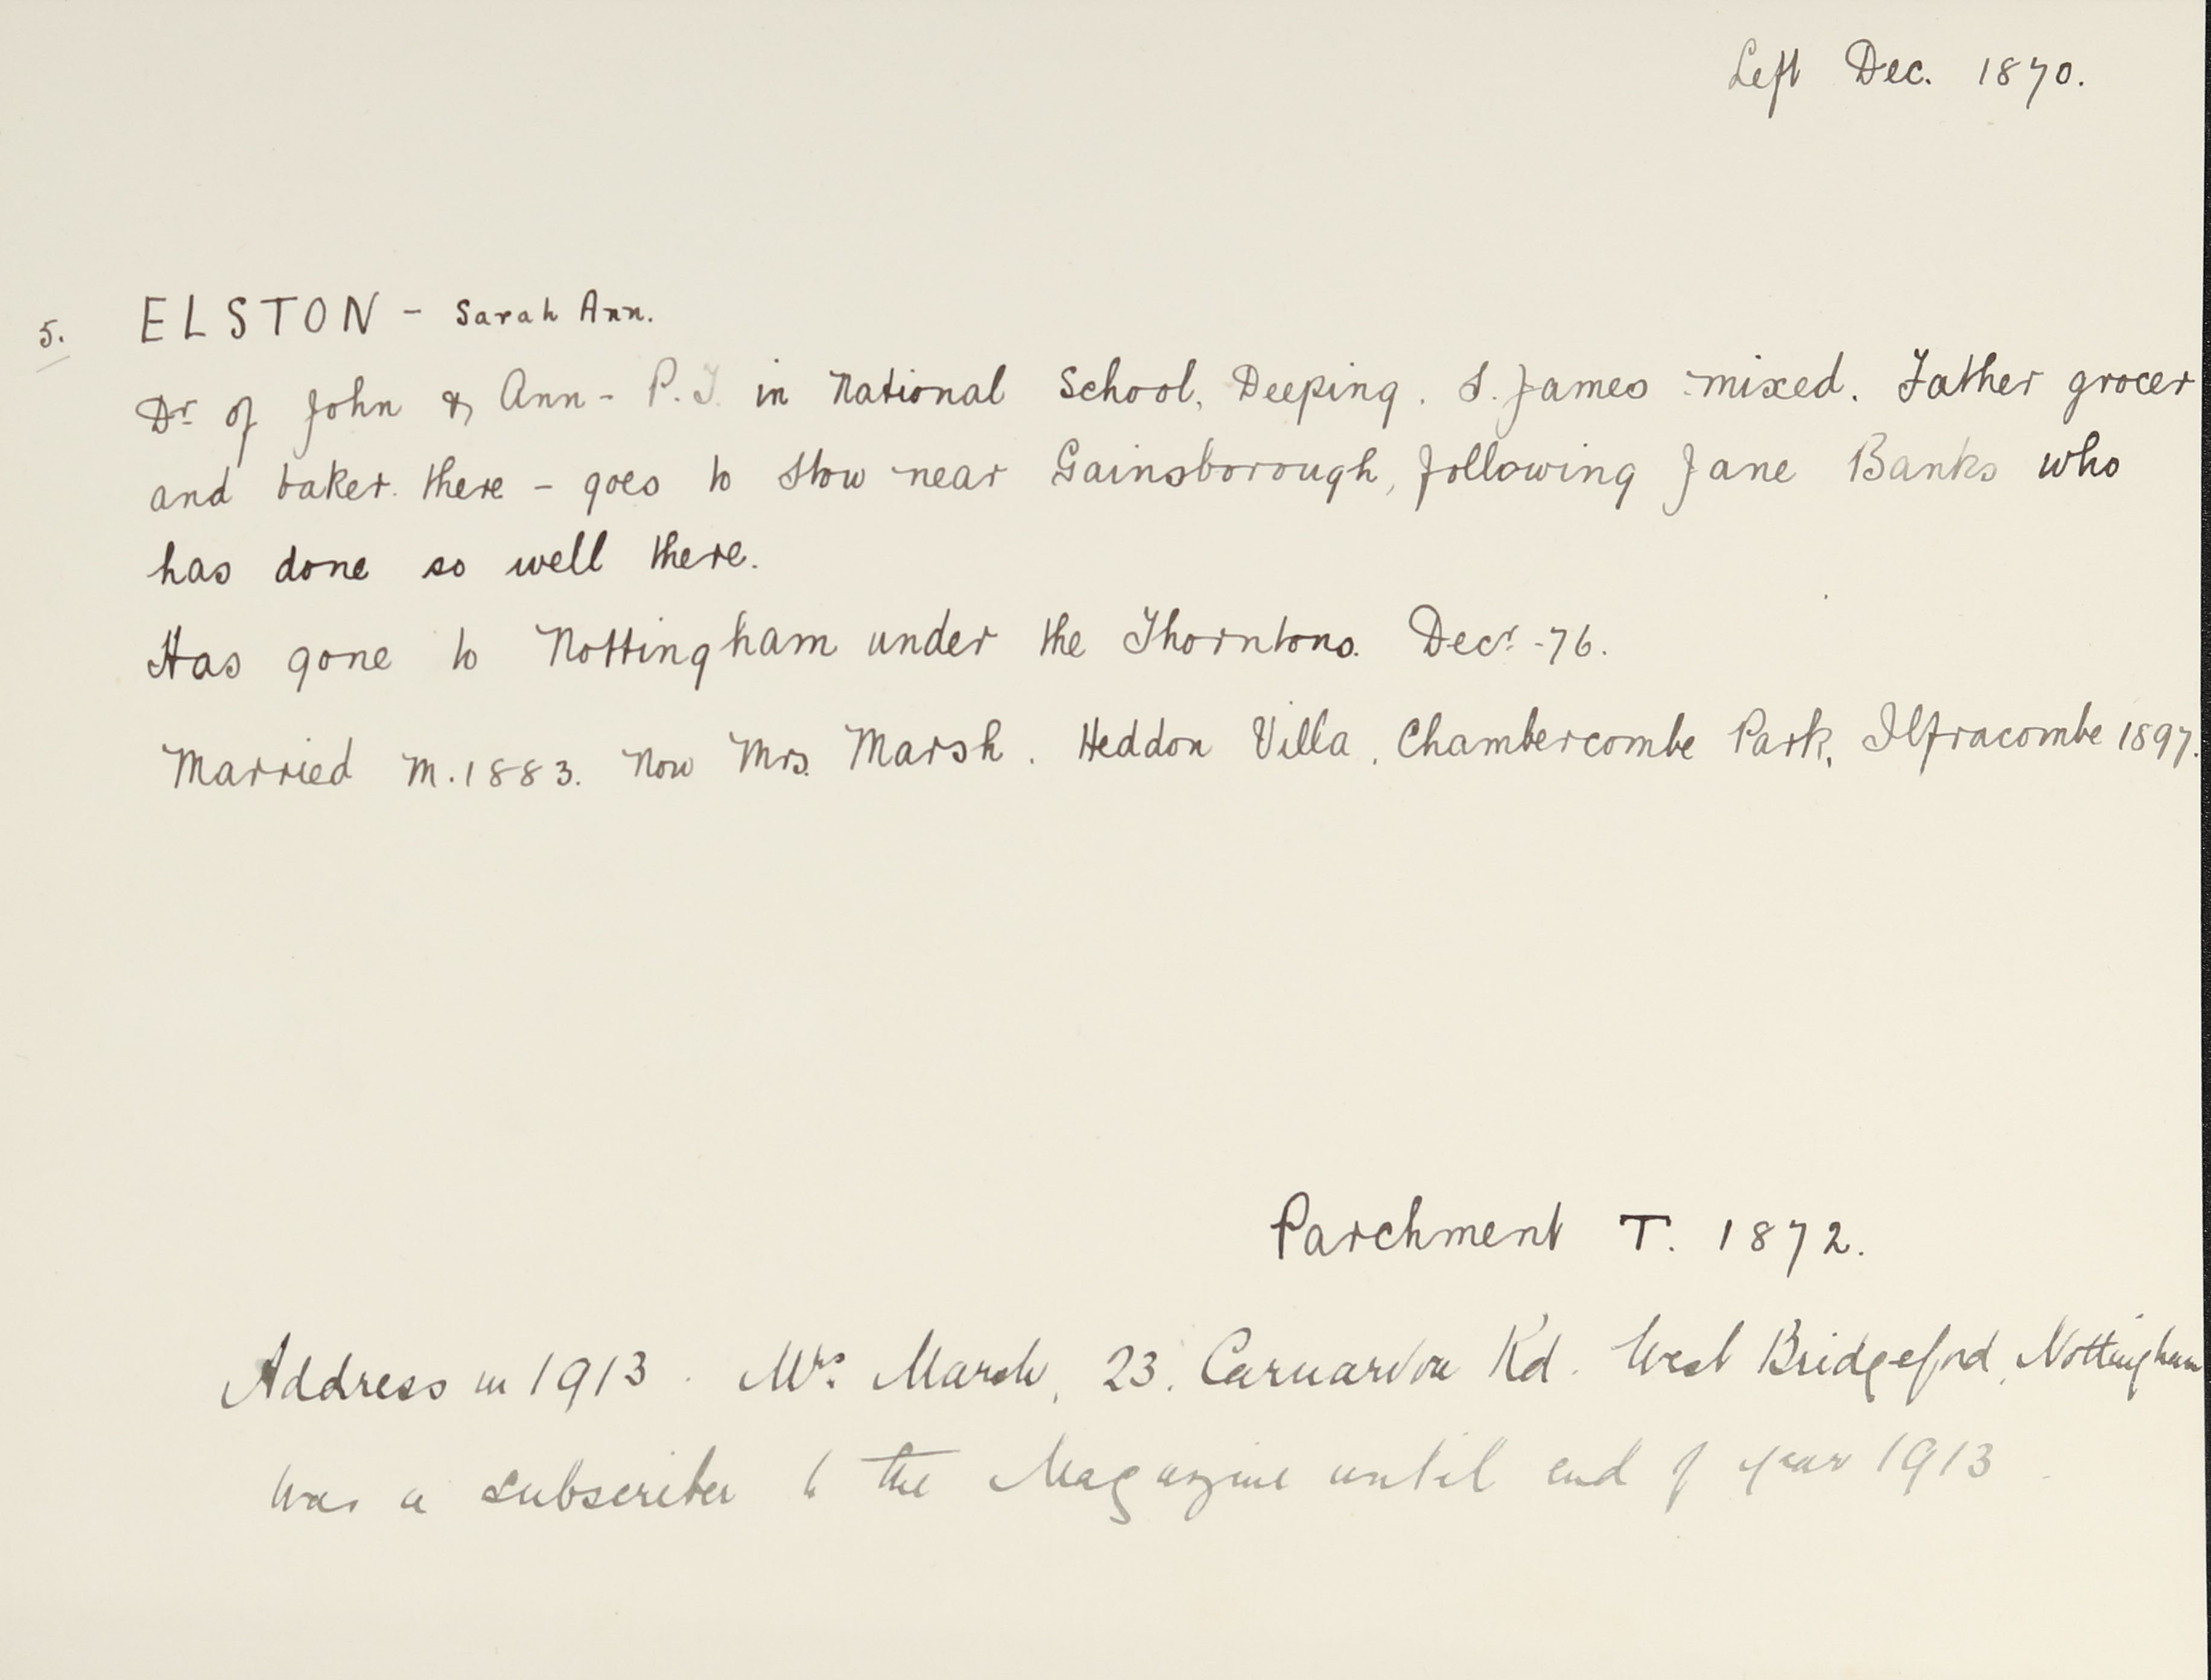 Left Dec. 1870.
5. ELSTON - Sarah Ann.
Dr of John & Ann - P.T. in National School, Deeping. S. James mixed. Father grocer
and baker. there - goes to Stow near Gainsborough, following Jane Banks who
has done so well there.
Has gone to Nottingham under the Thorntons. Decr -76.
Married M. 1883. Now Mrs. Marsh. Heddon Villa, Chambercombe Park, Ilfracombe 1897.
Parchment T. 1872.
Address in 1913. Mrs. Marsh, 23. Carnarvon Rd. West Bridgeford, Nottingham
Was a subscriber to the Magazine until end of year 1913